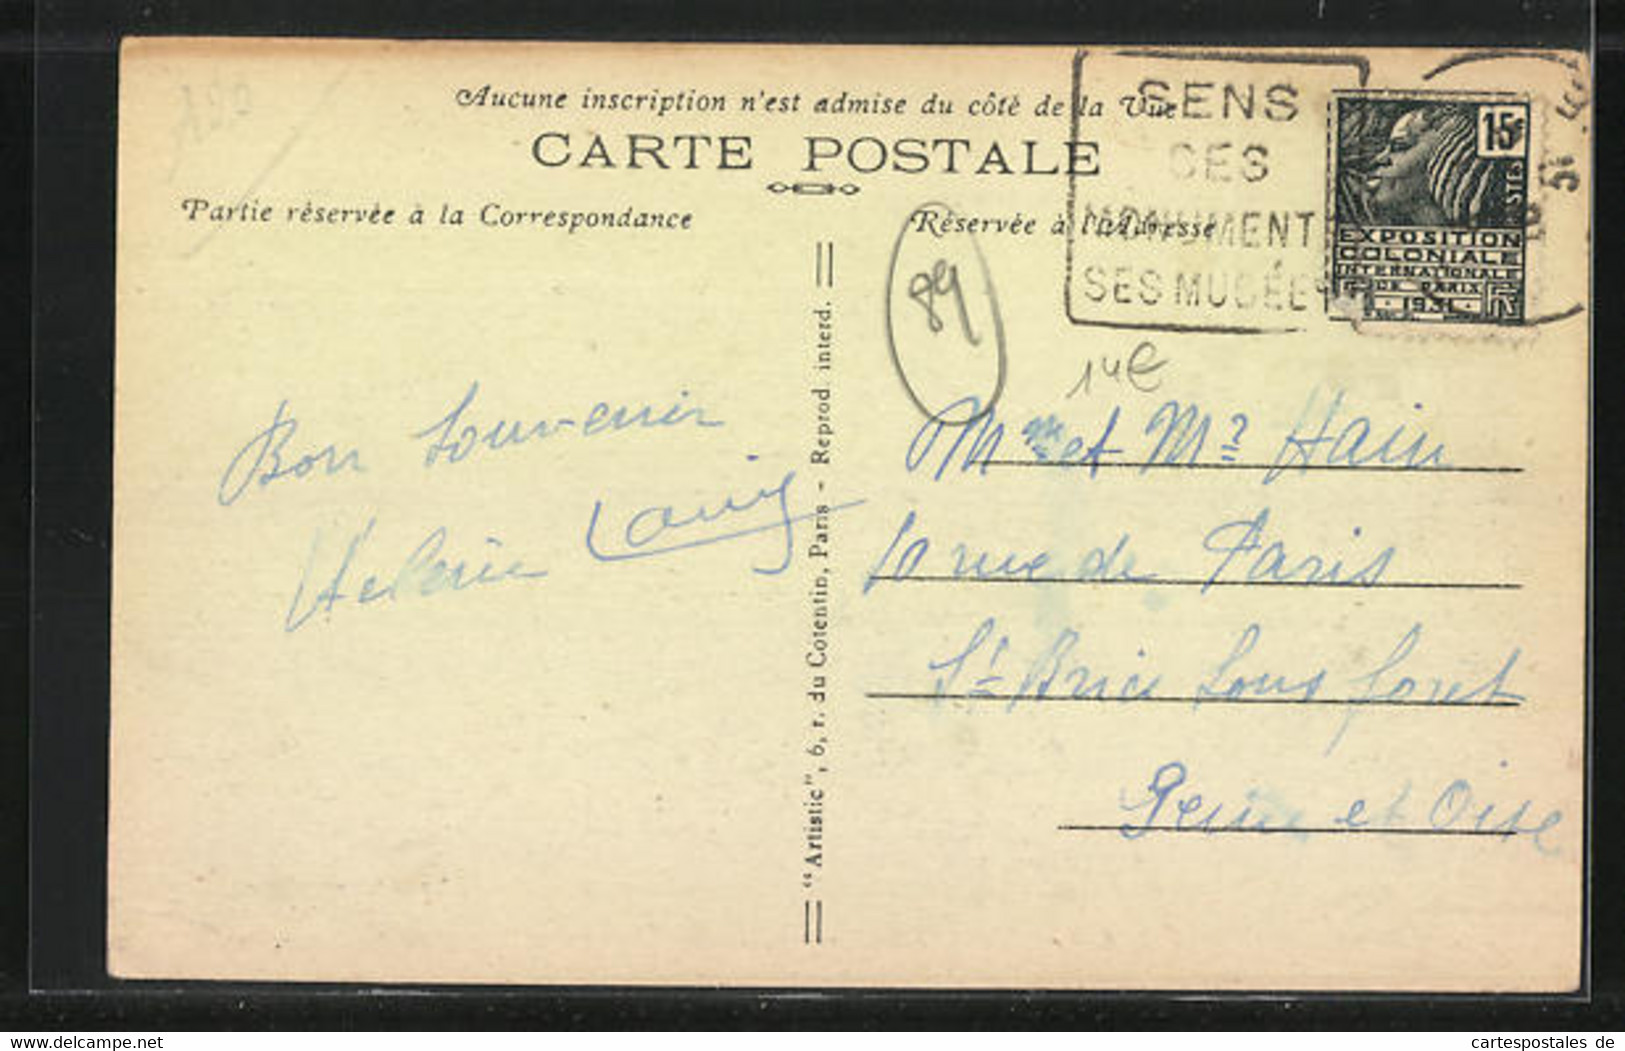 Aucune inscription n'est admise du côté de la Vue
CARTE POSTALE
Partie réservée à la Correspondance
Réservée à l'Adresse
SENS
SES
MONUMENT
SES MUSÉES
15c
POSTES
EXPOSITION
COLONIALE
INTERNATIONALE
DE PARIS
1931
89
14€
Bon Souvenir
Helene
"Artistic", 6, r. du Cotentin, Paris - Reprod interd.
Mme et Mr Hain
10 rue de Paris
St Brice sous foret
Seine et Oise
www.delcampe.net
cartespostales de